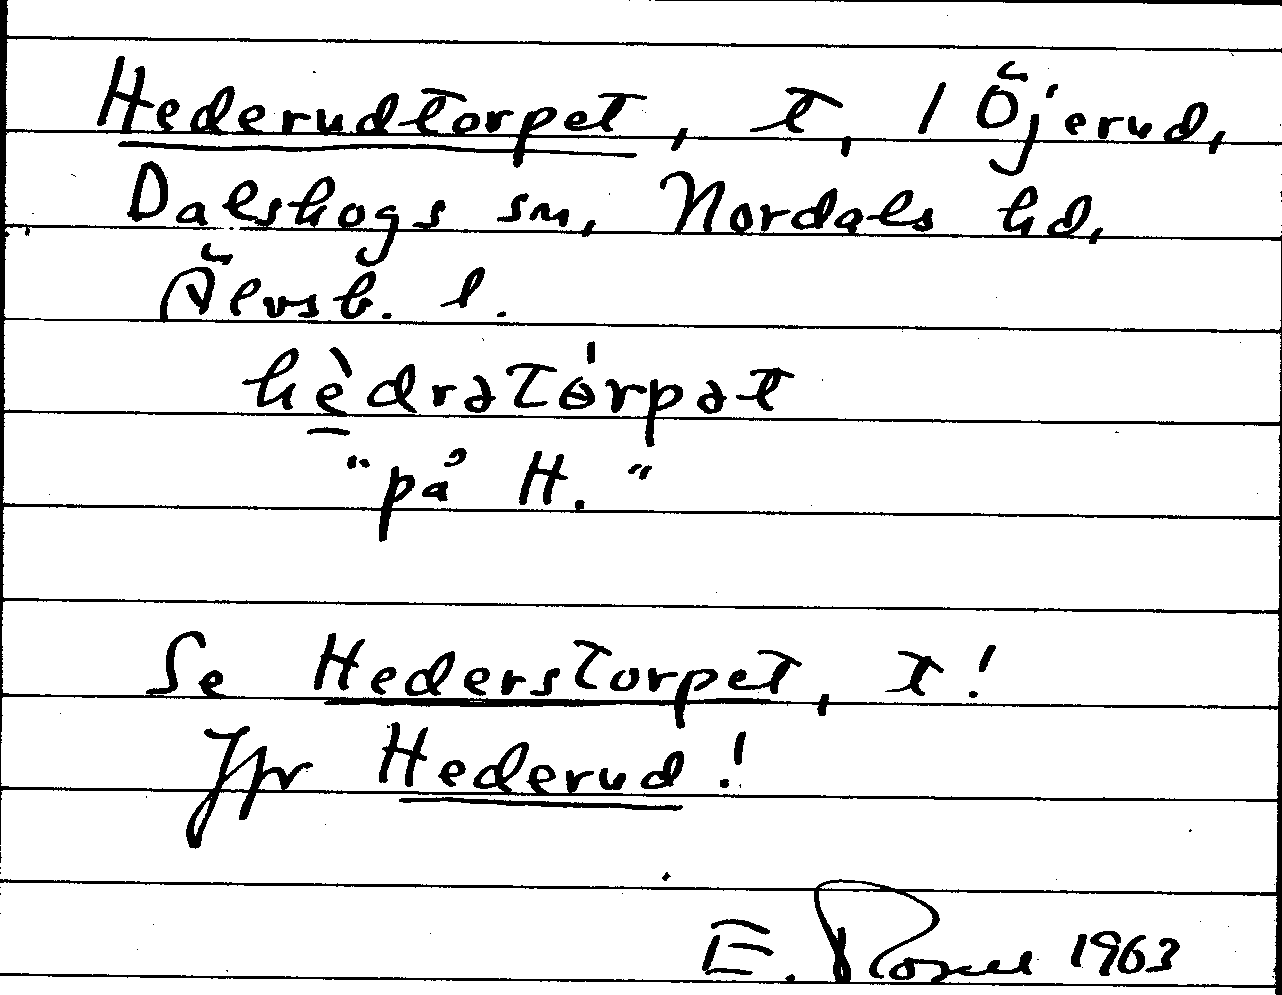 Hederudtorpet, t, / Öjerud,
Dalskogs sn, Nordals hd,
Älvsb. l.
hèdrətórpət
"på H."
Se Hederstorpet, t!
Jfr Hederud!
E. 1963